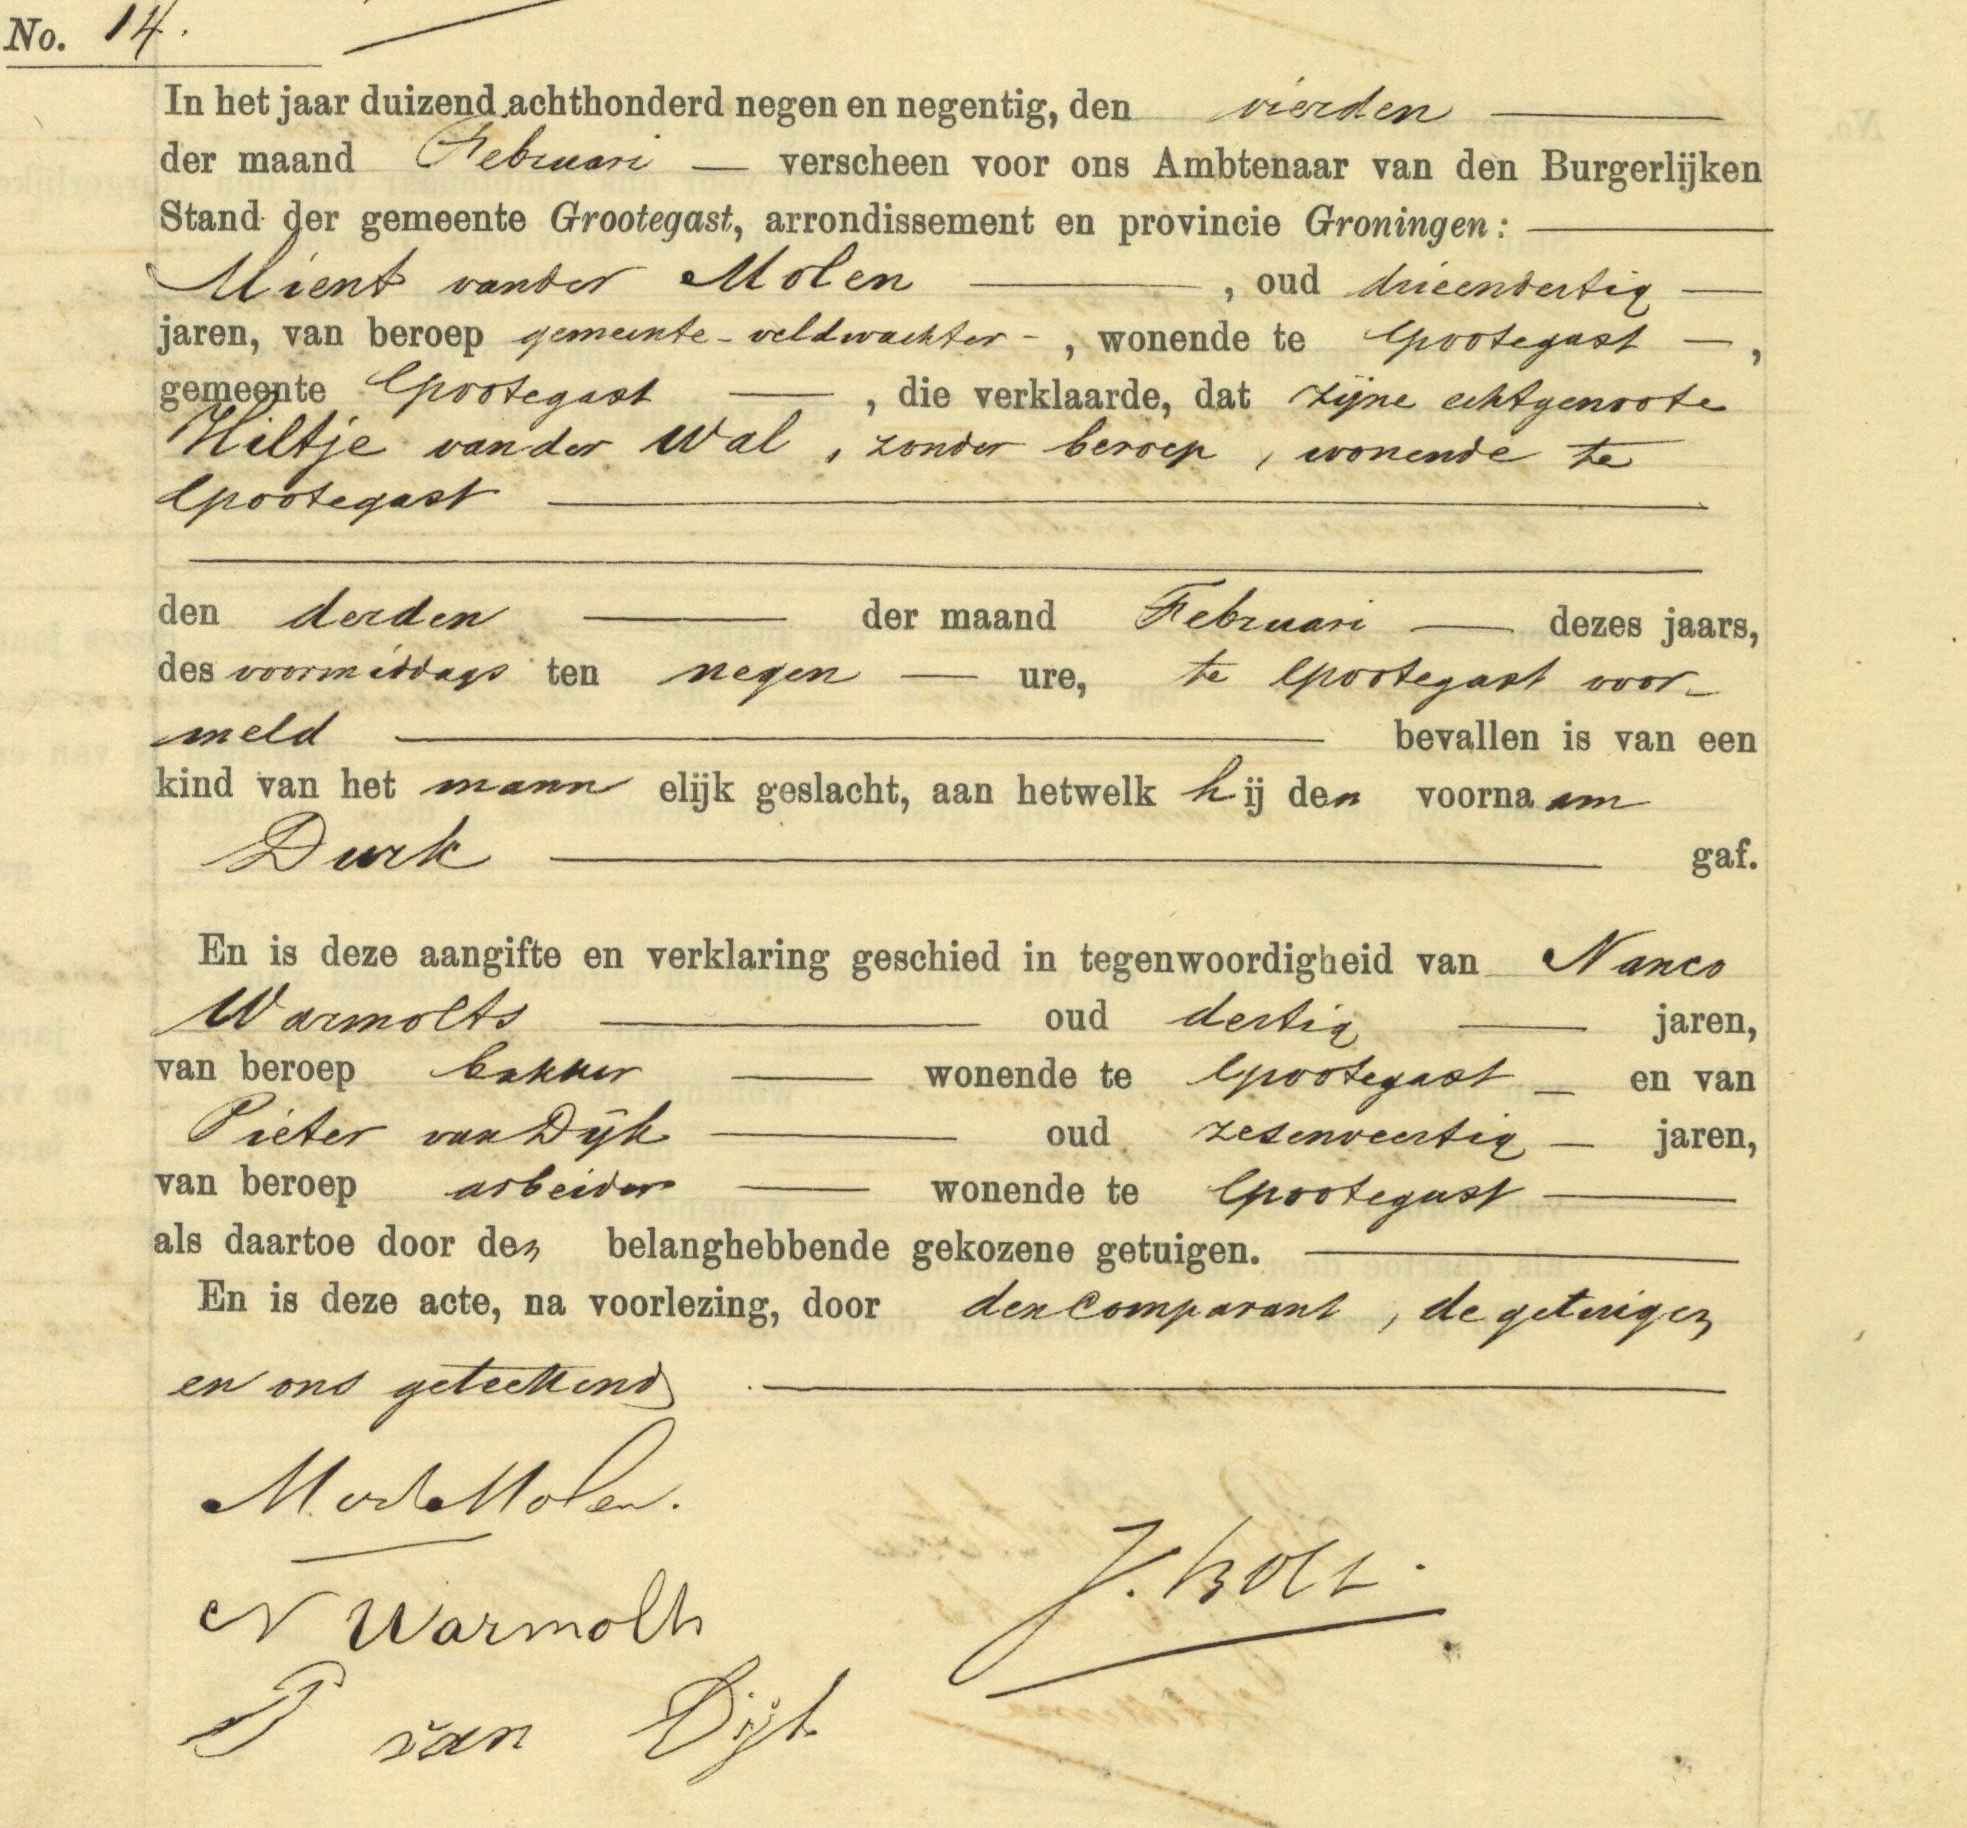 No. 14.
In het jaar duizend achthonderd negen en negentig, den vierden
der maand Februari — verscheen voor ons Ambtenaar van den Burgerlijken
Stand der gemeente Grootegast, arrondissement en provincie Groningen:
Mient vander Molen —, oud drieendertig —
jaren, van beroep gemeente-veldwachter -, wonende te Grootegast —,
gemeente Grootegast —, die verklaarde, dat zijne echtgenoote
Hiltje van der Wal, zonder beroep, wonende te
Grootegast
den derden — der maand Februari — dezes jaars,
des voormiddags ten negen — ure, te Grootegast voor-
meld — bevallen is van een
kind van het mannelijk geslacht, aan hetwelk hij den voornaam
Durk — gaf.
En is deze aangifte en verklaring geschied in tegenwoordigheid van Nanco
Warmolts — oud dertig — jaren,
van beroep bakker — wonende te Grootegast — en van
Pieter van Dijk — oud zesenveertig — jaren,
van beroep arbeider — wonende te Grootegast —
als daartoe door den belanghebbende gekozene getuigen. —
En is deze acte, na voorlezing, door den Comparant, de getuigen
en ons geteekend. —
M vd Molen.
N Warmolts
J.
P van Dijk